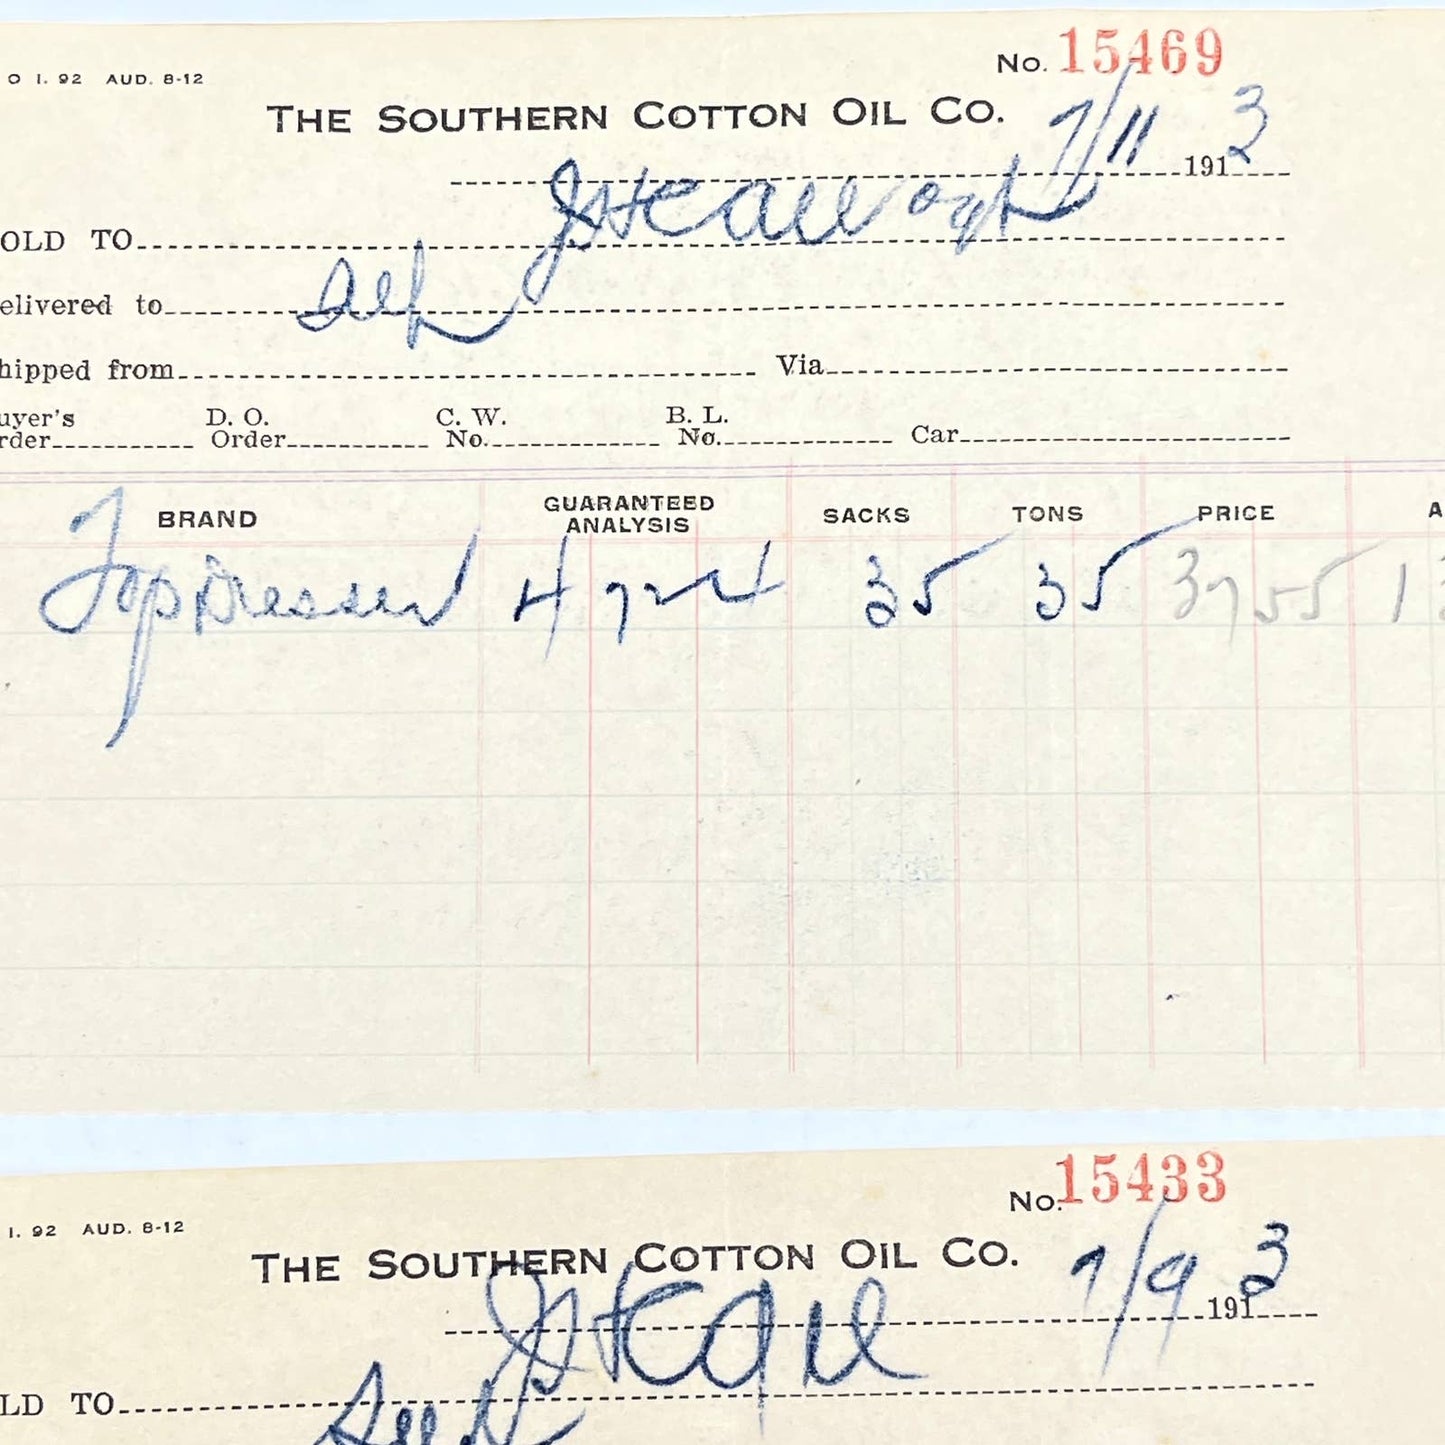 O I. 92 AUD. 8-12
No. 15469
THE SOUTHERN COTTON OIL CO.
7/11 1913
OLD TO
elivered to
hipped from Via
uyer's D. O. C. W. B. L.
rder Order No. No. Car
BRAND GUARANTEED ANALYSIS SACKS TONS PRICE A
Top Dresser 4 35 35 3755 1 3
I. 92 AUD. 8-12
No. 15433
THE SOUTHERN COTTON OIL CO.
7/9 1913
LD TO